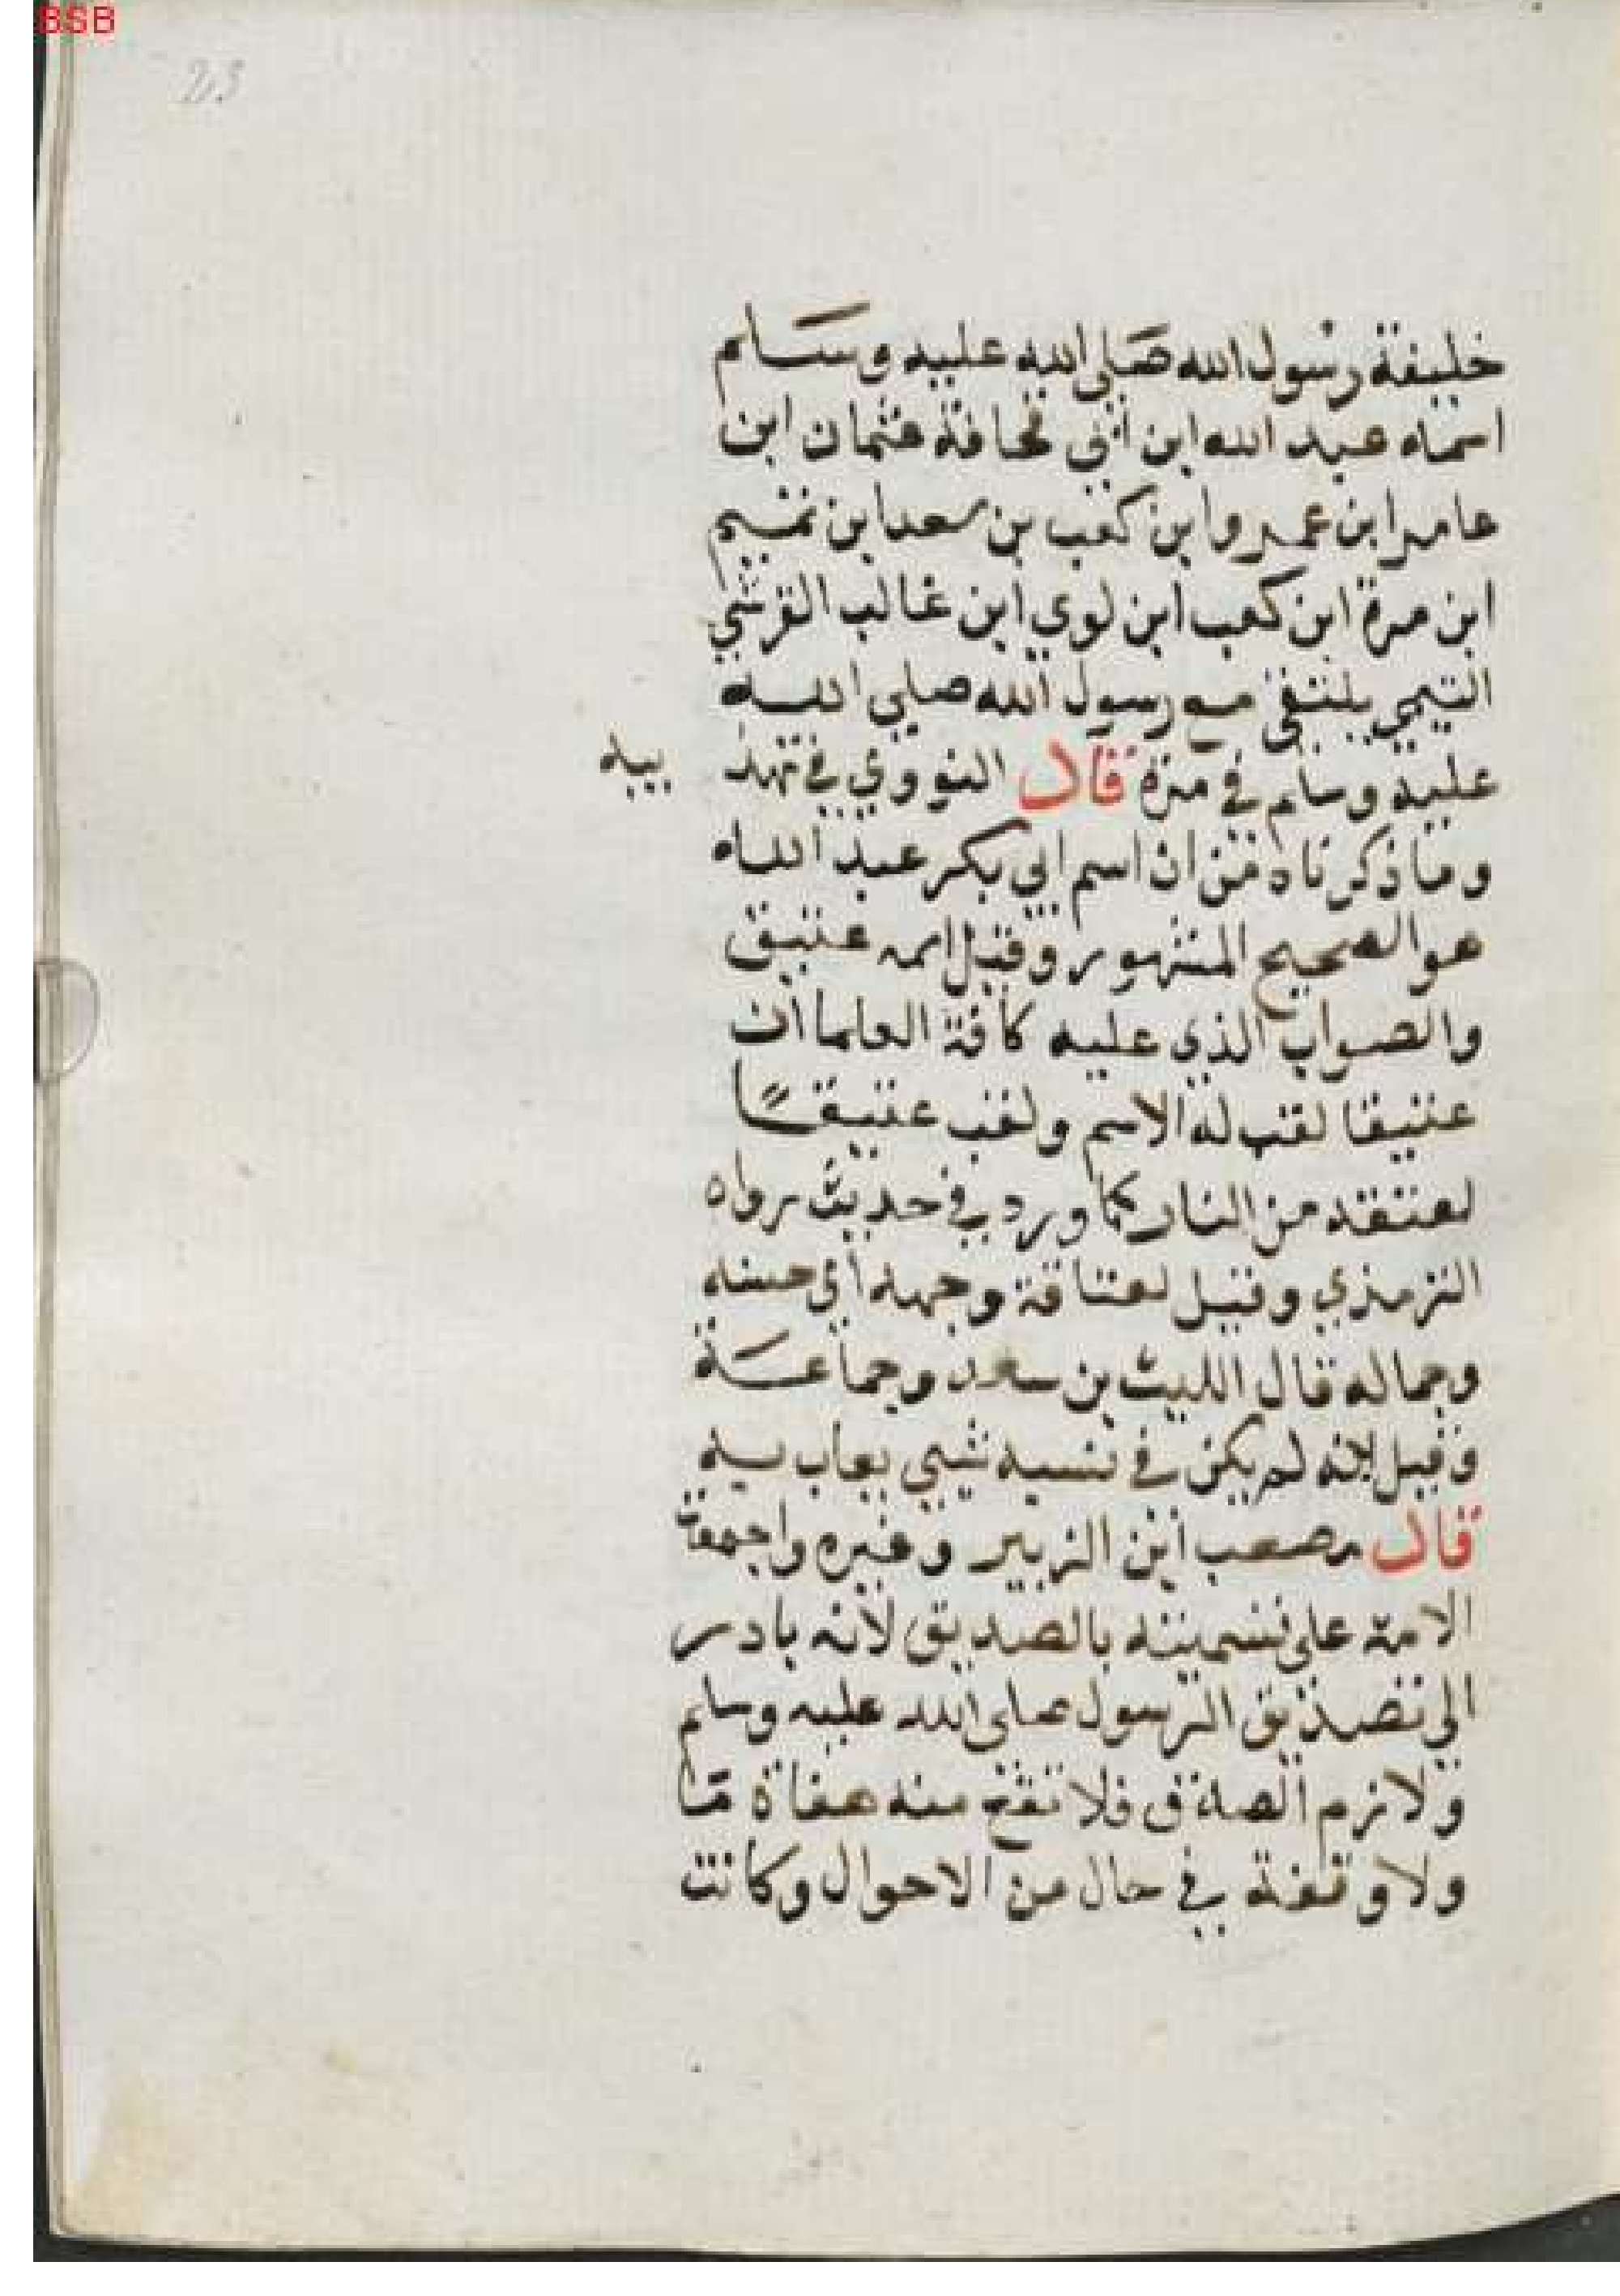 BSB
23
خليفة رسول الله صلى الله عليه وسلم
اسمه عبد الله ابن أبي قحافة عثمان ابن
عامر ابن عمرو ابن كعب بن سعد ابن تميم
ابن مرة ابن كعب ابن لوي ابن غالب القرشي
التيمي يلتقي مع رسول الله صلى الله
عليه وسلم في مرة قال النووي في تهذ يبه
وما ذكرناه من ان اسم ابي بكر عبد الله
هو الصحيح المشهور وقيل اسمه عتيق
والصواب الذي عليه كافة العلما ان
عتيقا لقب له الاسم ولقب عتيقًا
لعتقه من النار كما ورد في حديث رواه
الترمذي وقيل لعتاقة وجهه أي حسنه
وجماله قال الليث بن سعد وجماعة
وقيل لانه لم يكن في نسبه شيي يعاب به
قال مصعب ابن الزبير وغيره واجمعت
الامة على تسميته بالصديق لأنه بادر
الى تصديق الرسول صلى الله عليه وسلم
ولازم الصدق فلا تقع منه هفاة ما
ولا وقفة في حال من الاحوال وكانت